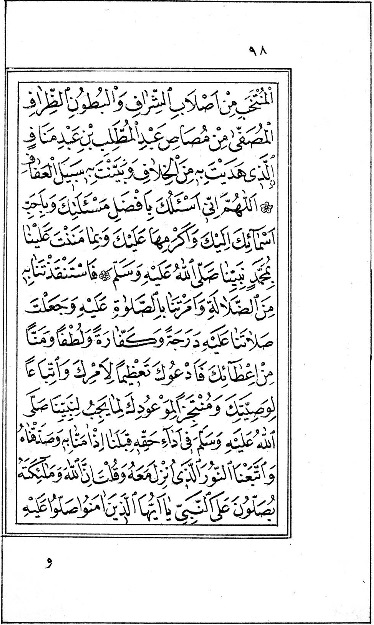 ٩٨
الْمُنْتَخَبِ مِنْ اَصْلَابِ الشِّرَافِ وَالْبُطُونِ الظِّرَافِ
الْمُصَفّٰى مِنْ مُصَاصِ عَبْدِ الْمُطَّلِبِ بْنِ عَبْدِ مَنَافٍ
اَلَّذِى هَدَيْتَ بِهِ مِنَ الْخِلَافِ وَبَيَّنْتَ بِهِ سَبِيلَ الْعَفَافِ
اَللّٰهُمَّ اِنِّى اَسْئَلُكَ بِاَفْضَلِ مَسْئَلَتِكَ وَبِاَحَبِّ
اَسْمَائِكَ اِلَيْكَ وَاَكْرَمِهَا عَلَيْكَ وَبِمَا مَنَنْتَ عَلَيْنَا
بِمُحَمَّدٍ نَبِيِّنَا صَلَّى اللهُ عَلَيْهِ وَسَلَّمَ فَاسْتَنْقَذْتَنَا بِهِ
مِنَ الضَّلَالَةِ وَاَمَرْتَنَا بِالصَّلٰوةِ عَلَيْهِ وَجَعَلْتَ
صَلَاتَنَا عَلَيْهِ دَرَجَةً وَكَفَّارَةً وَلُطْفًا وَمَنًّا
مِنْ اِعْطَائِكَ فَاَدْعُوكَ تَعْظِيمًا لِاَمْرِكَ وَاتِّبَاعًا
لِوَصِيَّتِكَ وَمُنْتَجِزًا لِمَوْعُودِكَ لِمَا يَجِبُ لِنَبِيِّنَا صَلَّى
اللهُ عَلَيْهِ وَسَلَّمَ فِى اَدَاءِ حَقِّهِ قِبَلَنَا اِذْ اٰمَنَّا بِهِ وَصَدَّقْنَاهُ
وَاتَّبَعْنَا النُّورَ الَّذِى اُنْزِلَ مَعَهُ وَقُلْتَ اِنَّ اللهَ وَمَلٰئِكَتَهُ
يُصَلُّونَ عَلَى النَّبِيِّ يَا اَيُّهَا الَّذِينَ اٰمَنُوا صَلُّوا عَلَيْهِ
و